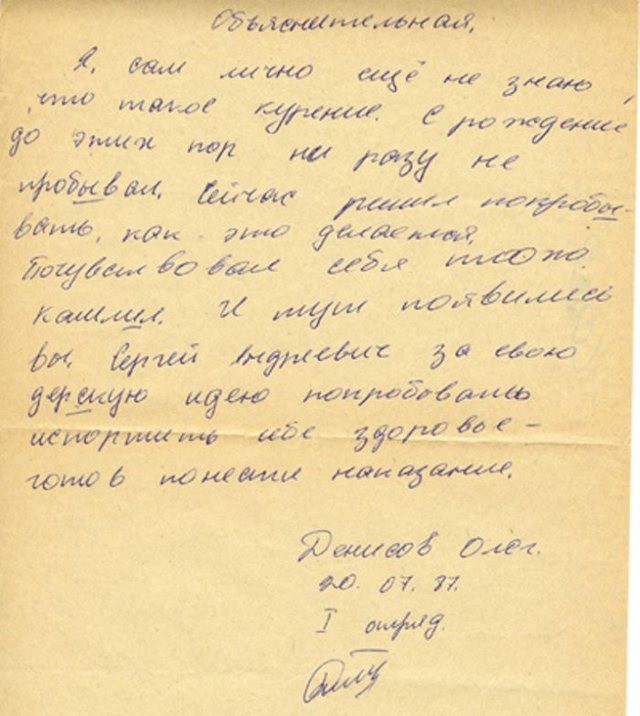 Объяснительная.
Я, сам лично ещё не знаю,
что такое курение. С рождение
до этих пор ни разу не
пробывал. Сейчас решил попробы-
вать, как это делается.
Почувствовал себя плохо
кашлил. И тут появились
вы. Сергей Андриевич за свою
дерскую идею попробовать
испортить себе здоровье -
готов понести наказание.
Денисов Олег.
20. 07. 87.
I отряд.